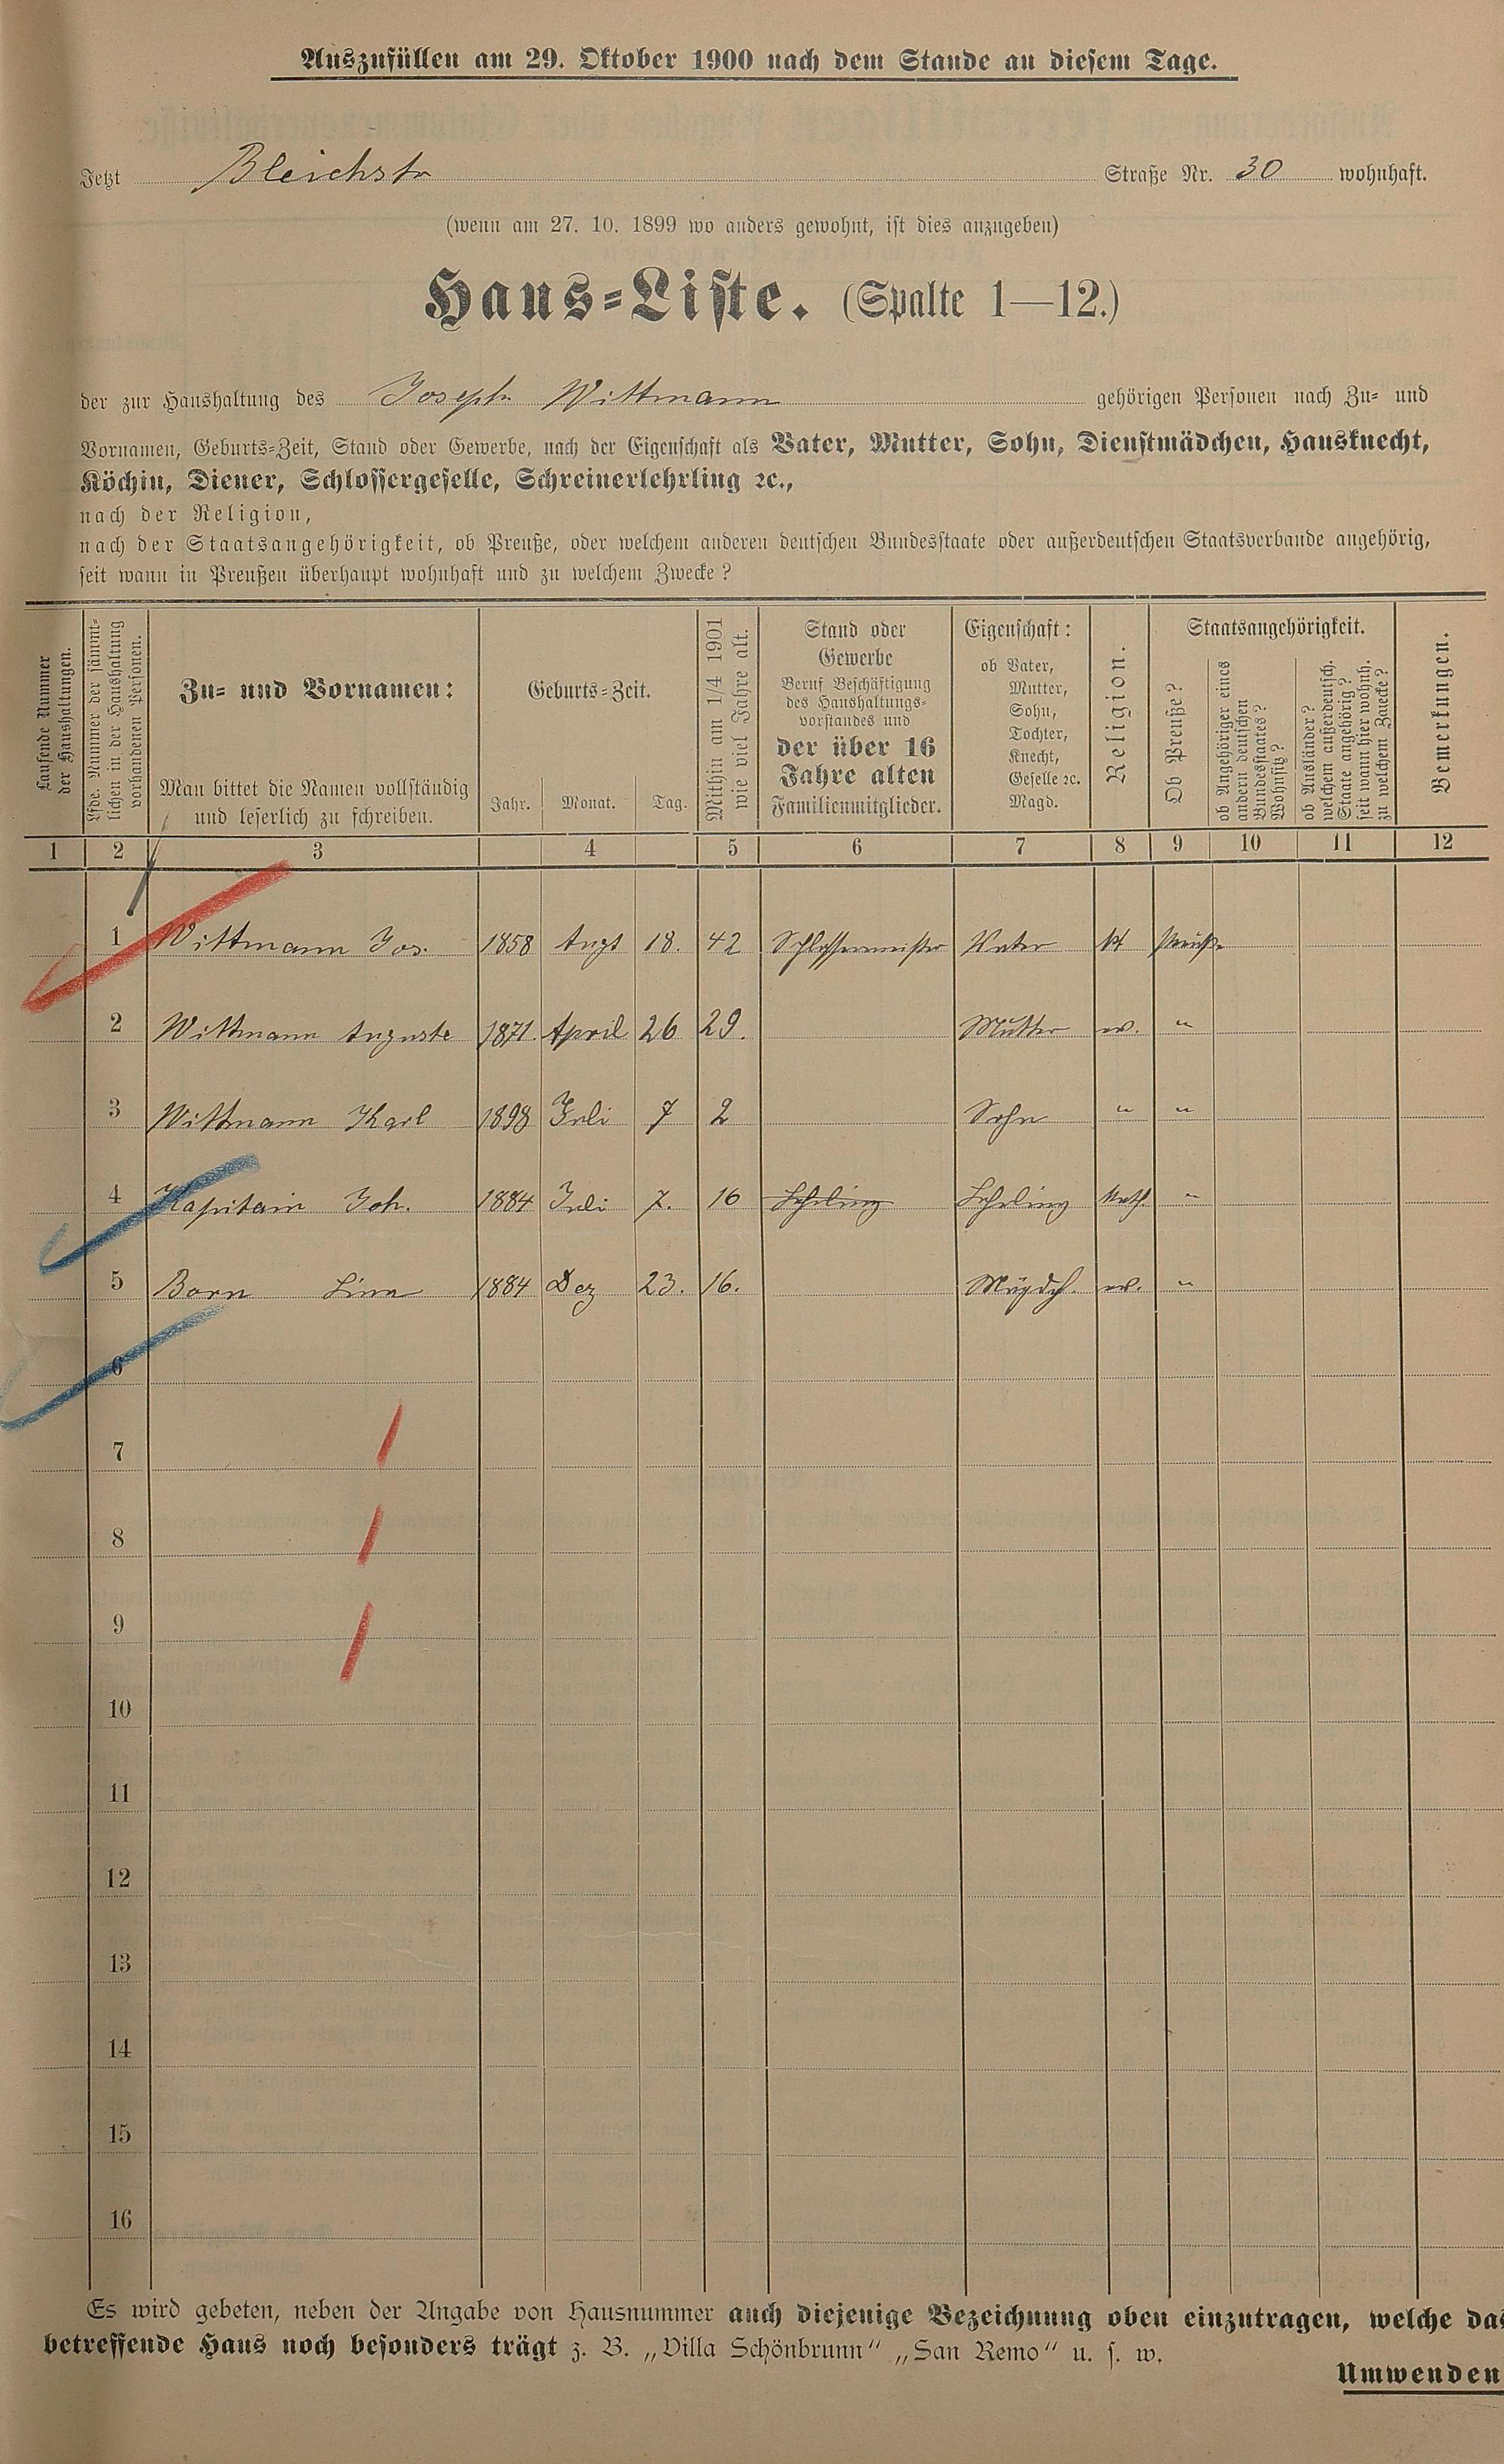 Auszufüllen am 29. Oktober 1900 nach dem Stande an diesem Tage.
Jetzt Bleichstr Straße Nr. 30 wohnhaft.
(wenn am 27. 10. 1899 wo anders gewohnt, ist dies anzugeben)
Haus-Liste. (Spalte 1—12.)
der zur Haushaltung des Joseph Wittmann gehörigen Personen nach Zu- und
Vornamen, Geburts-Zeit, Stand oder Gewerbe, nach der Eigenschaft als Vater, Mutter, Sohn, Dienstmädchen, Hausknecht,
Köchin, Diener, Schlossergeselle, Schreinerlehrling ꝛc.,
nach der Religion,
nach der Staatsangehörigkeit, ob Preuße, oder welchem anderen deutschen Bundesstaate oder außerdeutschen Staatsverbande angehörig,
seit wann in Preußen überhaupt wohnhaft und zu welchem Zwecke?
Laufende Nummer
der Haushaltungen.
Lfde. Nummer der sämmt-
lichen in der Haushaltung
vorhandenen Personen.
Zu- und Vornamen:
Man bittet die Namen vollständig
und leserlich zu schreiben.
Geburts-Zeit.
Jahr. Monat. Tag.
Mithin am 1/4 1901
wie viel Jahre alt.
Stand oder
Gewerbe
Beruf Beschäftigung
des Haushaltungs-
vorstandes und
der über 16
Jahre alten
Familienmitglieder.
Eigenschaft:
ob Vater,
Mutter,
Sohn,
Tochter,
Knecht,
Geselle ꝛc.
Magd.
Religion.
Staatsangehörigkeit.
Ob Preuße?
ob Angehöriger eines
andern deutschen
Bundesstaates?
Wohnsitz?
ob Ausländer?
welchem außerdeutsch.
Staate angehörig?
seit wann hier wohnh.
zu welchem Zwecke?
Bemerkungen.
1 2 3 4 5 6 7 8 9 10 11 12
1 Wittmann Jos. 1858 Augt 18. 42 Schlossermeister Vater kt Preuße
2 Wittmann Auguste 1871. April 26 29. Mutter ev. "
3 Wittmann Karl 1898 Juli 7 2 Sohn " "
4 Kapitain Joh. 1884 Juli 7. 16 Lehrling Lehrling Kath. "
5 Born Lina 1884 Dez 23. 16. Mägdch. ev. "
6
7
8
9
10
11
12
13
14
15
16
Es wird gebeten, neben der Angabe von Hausnummer auch diejenige Bezeichnung oben einzutragen, welche das
betreffende Haus noch besonders trägt z. B. „Villa Schönbrunn" „San Remo" u. s. w.
Umwenden